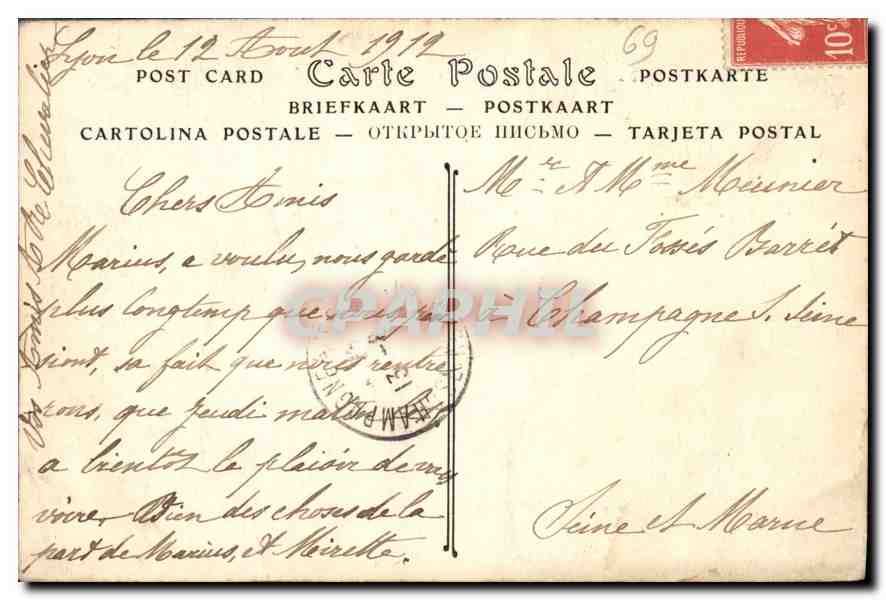 Lyon le 12 Aout 1912
69
REPUBLIQUE
10c
POST CARD Carte Postale POSTKARTE
BRIEFKAART — POSTKAART
CARTOLINA POSTALE — ОТКРЫТОЕ ПИСЬМО — TARJETA POSTAL
Chers Amis
Marius, a voulu, nous gardé
plus longtemp que
siont, sa fait que nous rentre
rons, que Jeudi matin
a bientot le plaisir de
voire. Bien des choses de la
part de Marius, et Mirette.
Vos Amis A et Chevalier
Mr & Mme Meunier
Rue du Fossés Barrét
à Champagne S. Seine
Seine et Marne
CHAMPAGNE
13
CPAPHIL